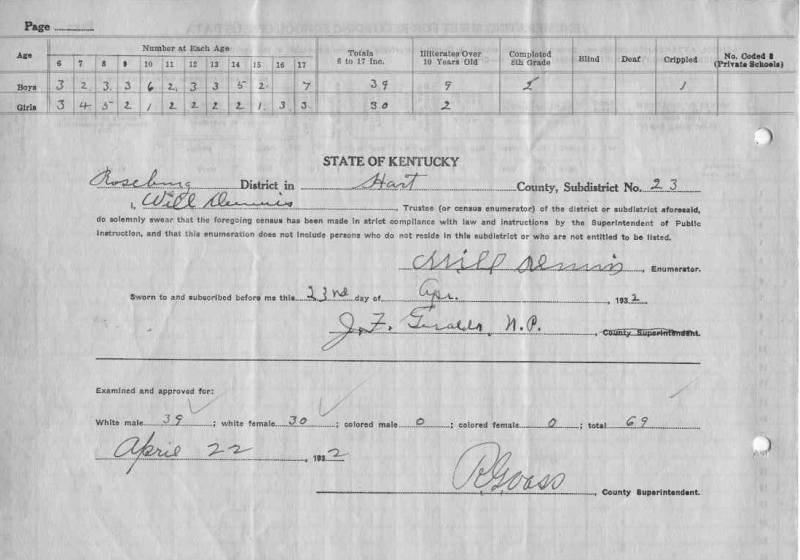 Page
Age Number at Each Age Totals 6 to 17 Inc. Illiterates Over 10 Years Old Completed 8th Grade Blind Deaf Crippled No. Coded 8 (Private Schools)
6 7 8 9 10 11 12 13 14 15 16 17
Boys 3 2 3 3 6 2 3 3 5 2 7 39 9 1
Girls 3 4 5 2 1 2 2 2 2 1 3 3 30 2
STATE OF KENTUCKY
Roseburg District in Hart County, Subdistrict No. 23
I, Will Dennis, Trustee (or census enumerator) of the district or subdistrict aforesaid,
do solemnly swear that the foregoing census has been made in strict compliance with law and instructions by the Superintendent of Public
Instruction, and that this enumeration does not include persons who do not reside in this subdistrict or who are not entitled to be listed.
Will Dennis, Enumerator.
Sworn to and subscribed before me this 23nd day of Apr., 1932
J. F. N.P., County Superintendent.
Examined and approved for:
White male 39; white female 30; colored male 0; colored female 0; total 69
April 22, 1932
County Superintendent.